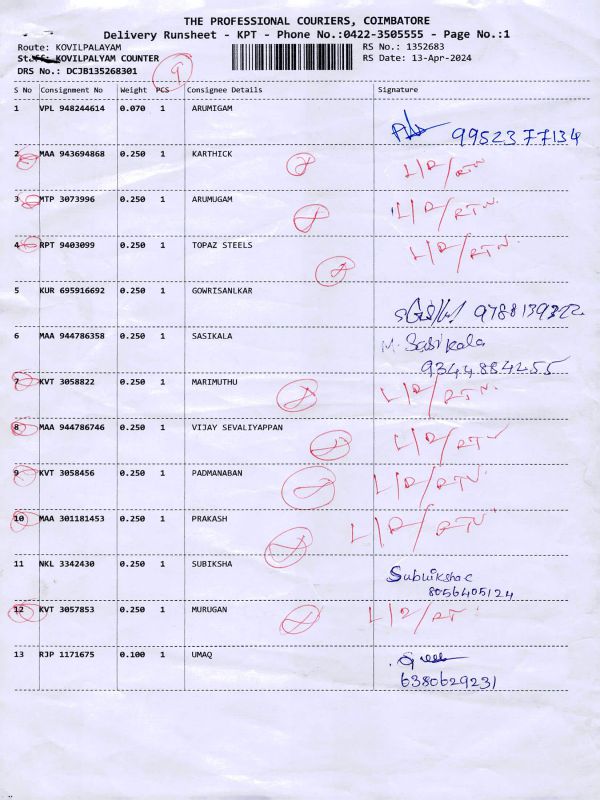 THE PROFESSIONAL COURIERS, COIMBATORE
Delivery Runsheet - KPT - Phone No.:0422-3505555 - Page No.:1
Route: KOVILPALAYAM RS No.: 1352683
Staff: KOVILPALYAM COUNTER RS Date: 13-Apr-2024
DRS No.: DCJB135268301 9
S No Consignment No Weight PCS Consignee Details Signature
1 VPL 948244614 0.070 1 ARUMIGAM
9952377134
2 MAA 943694868 0.250 1 KARTHICK L/D/RTN
3 MTP 3073996 0.250 1 ARUMUGAM L/D/RTN.
4 RPT 9403099 0.250 1 TOPAZ STEELS L/D/RTN.
5 KUR 695916692 0.250 1 GOWRISANLKAR
6 MAA 944786358 0.250 1 SASIKALA M. Sasikala
9344884255
7 KVT 3058822 0.250 1 MARIMUTHU L/D/RTN.
8 MAA 944786746 0.250 1 VIJAY SEVALIYAPPAN L/D/RTN
9 KVT 3058456 0.250 1 PADMANABAN L/D/RTN.
10 MAA 301181453 0.250 1 PRAKASH L/D/RTN.
11 NKL 3342430 0.250 1 SUBIKSHA
8056405124
12 KVT 3057853 0.250 1 MURUGAN L/D/RTN
13 RJP 1171675 0.100 1 UMAQ
6380629231